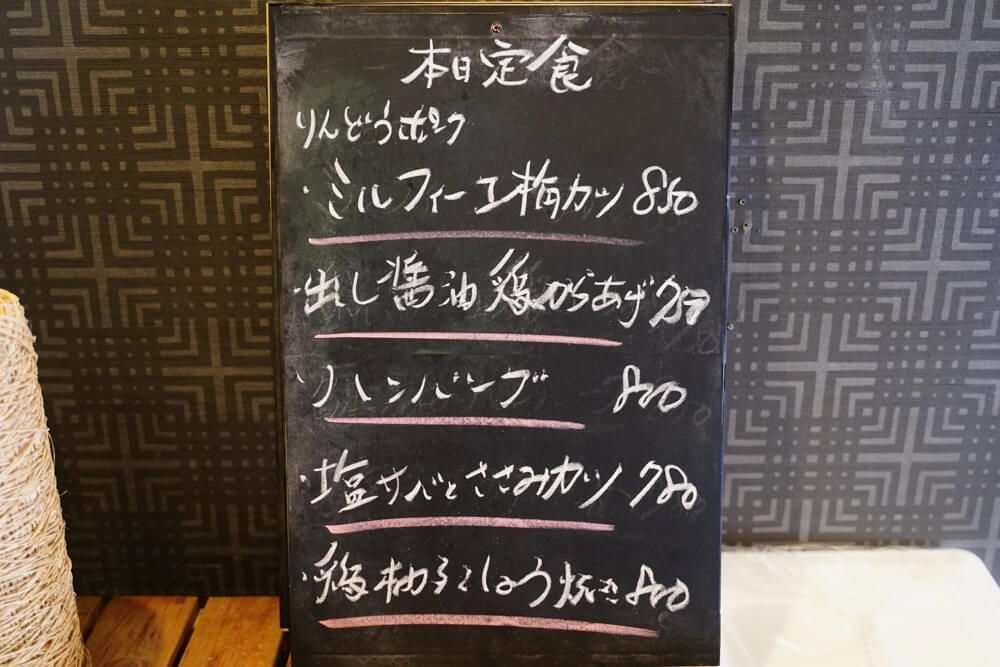 本日定食
りんどうポーク
・ミルフィーユ梅カツ 850
・出し醤油鶏からあげ
・ハンバーグ 800
・塩サバとささみカツ 780
・鶏柚子こしょう焼き 800